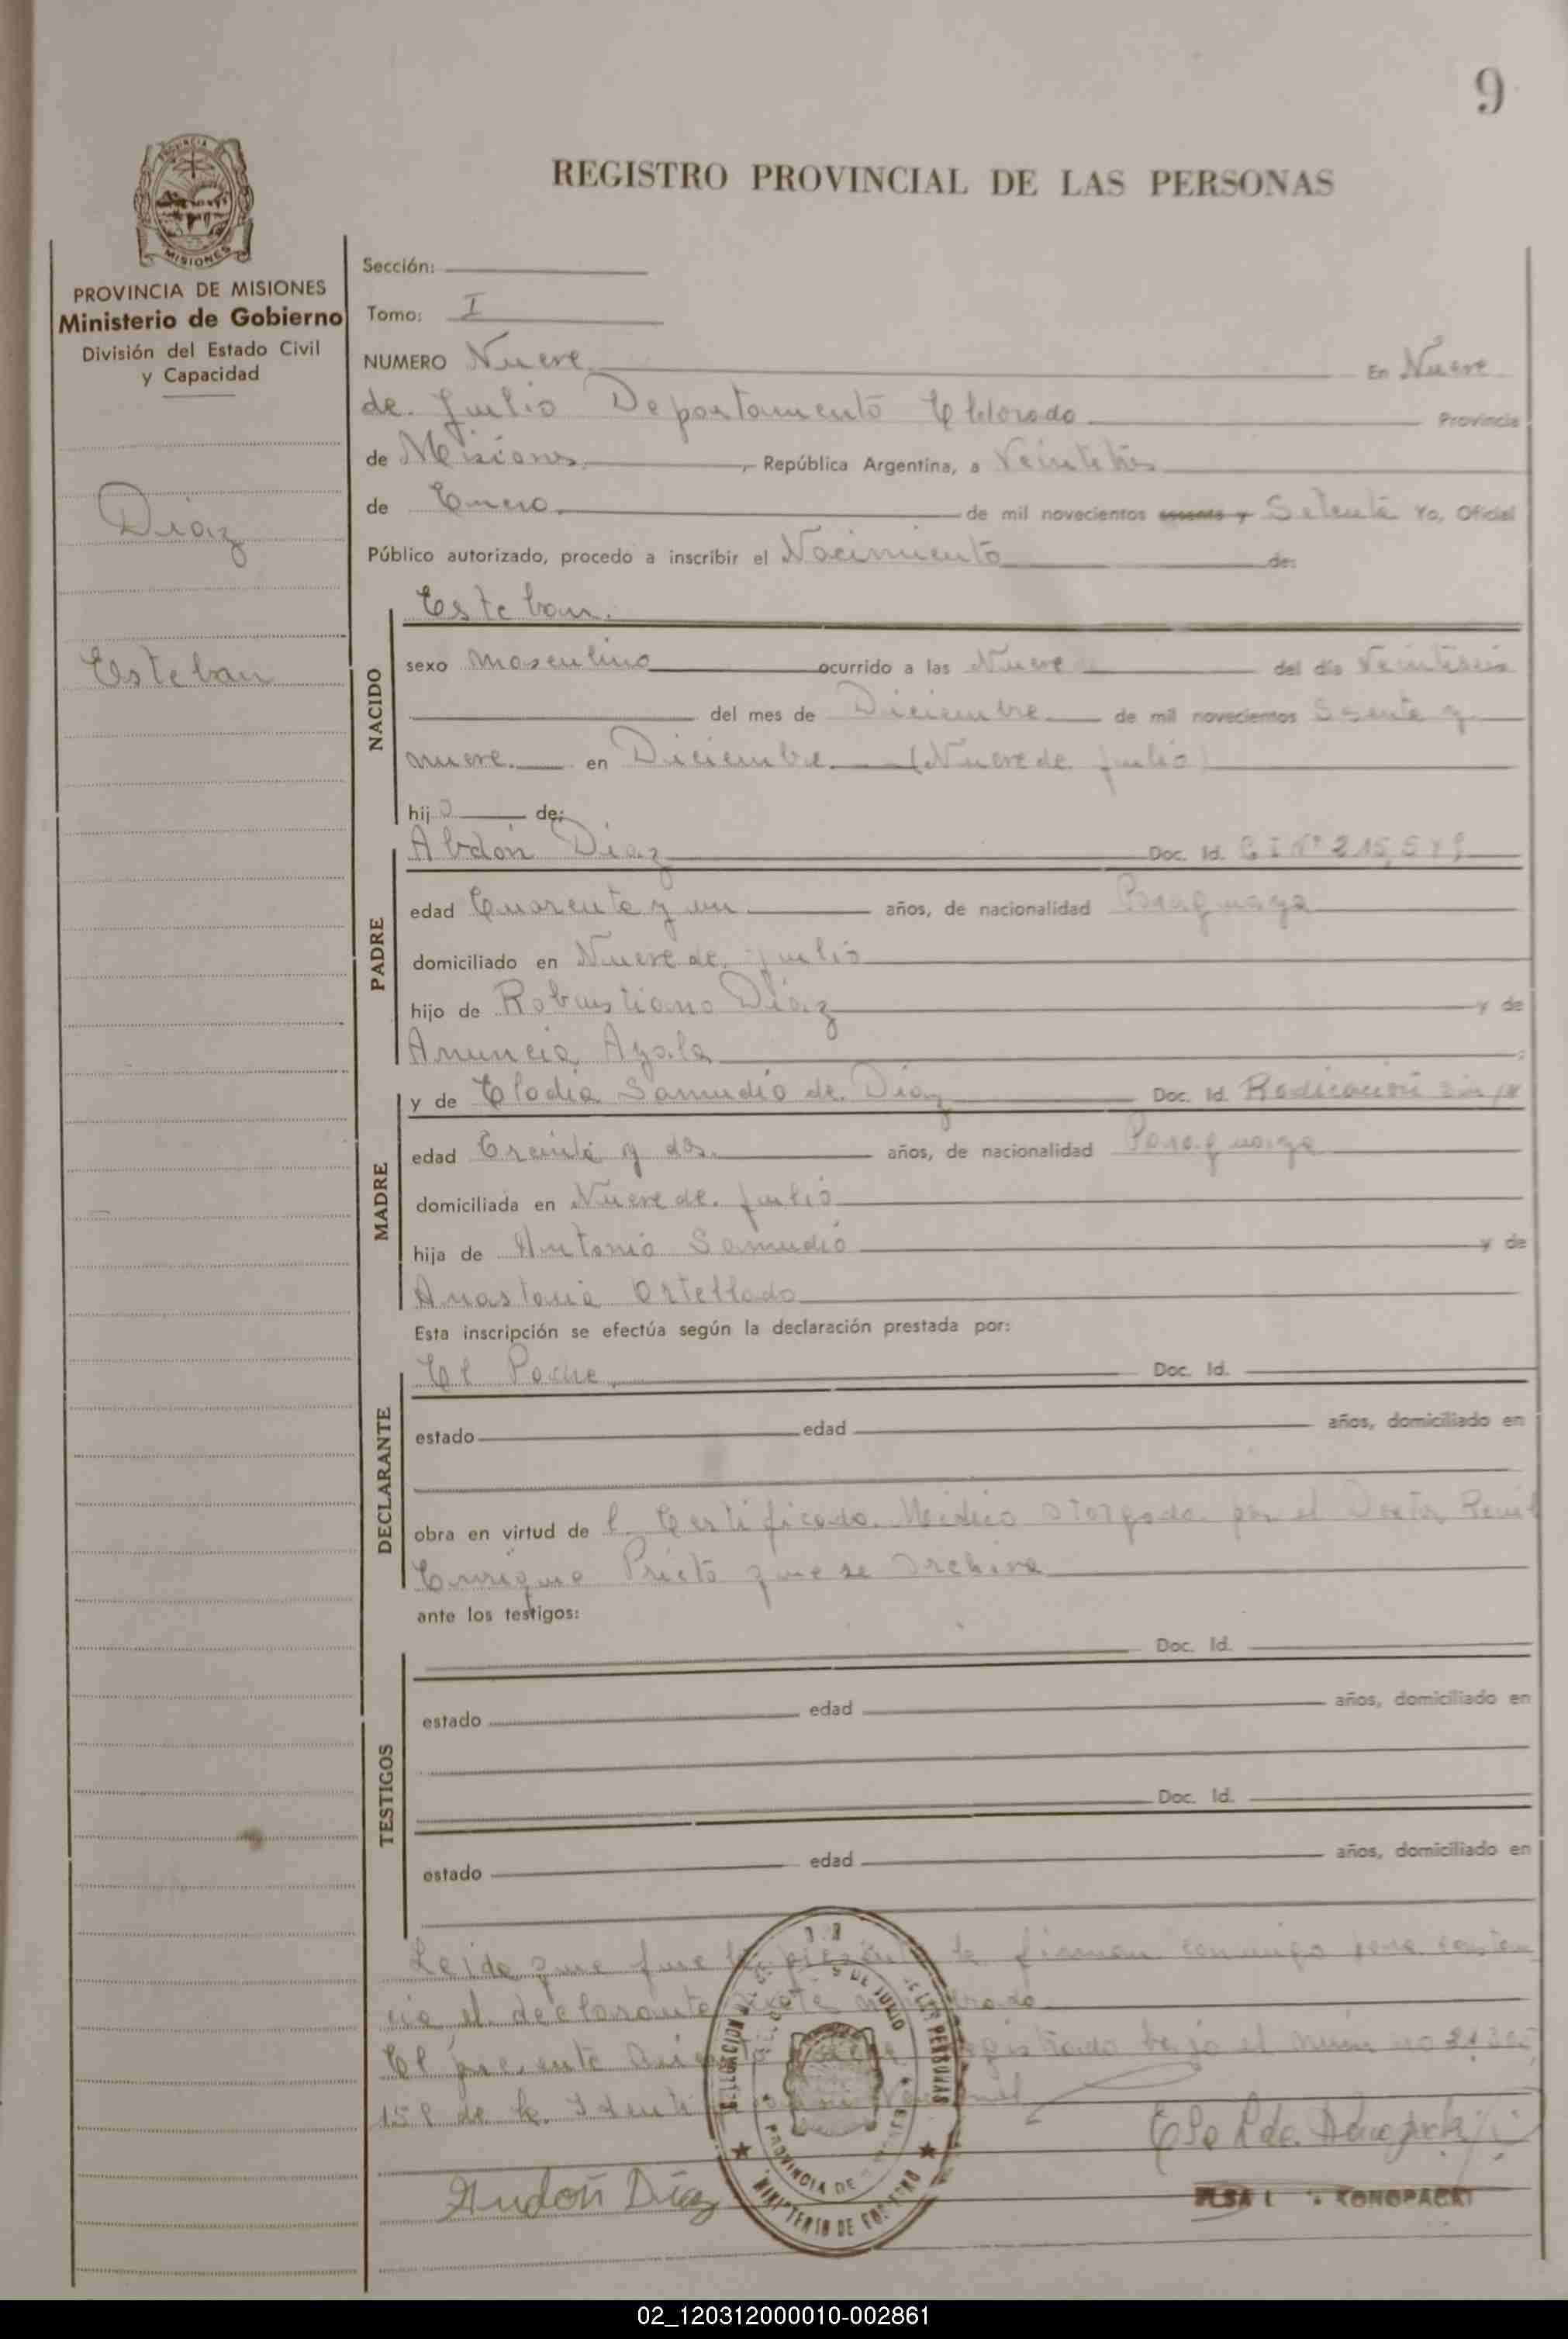 9
PROVINCIA DE
MISIONES
REGISTRO PROVINCIAL DE LAS PERSONAS
PROVINCIA DE MISIONES
Ministerio de Gobierno
División del Estado Civil
y Capacidad
Diaz
Esteban
Sección:
Tomo: I
NUMERO Nueve En Nueve
de Julio Departamento Eldorado Provincia
de Misiones, República Argentina, a Veintitrés
de Enero de mil novecientos sesenta y Setenta Yo, Oficial
Público autorizado, procedo a inscribir el Nacimiento de:
NACIDO
Esteban.
sexo masculino ocurrido a las Nueve del día Veintiseis
del mes de Diciembre de mil novecientos Sesenta y
nueve. en Diciembre (Nueve de Julio)
hijo de:
PADRE
Abdón Diaz Doc. Id. C I Nº 215.579
edad Cuarenta y un años, de nacionalidad Paraguaya
domiciliado en Nueve de Julio
hijo de Robustiano Diaz y de
Anuncia Ayala
MADRE
y de Elodia Samudio de Diaz Doc. Id. Radicación
edad Treinta y dos años, de nacionalidad Paraguaya
domiciliada en Nueve de Julio
hija de Antonio Samudio y de
Anastacia Ortellado
Esta inscripción se efectúa según la declaración prestada por:
DECLARANTE
El Padre, Doc. Id.
estado edad años, domiciliado en
obra en virtud de l Certificado Medico otorgado por el Doctor
Enrique Prieto que se archiva
ante los testigos:
TESTIGOS
Doc. Id.
estado edad años, domiciliado en
Doc. Id.
estado edad años, domiciliado en
Leida que fue la presente la firman conmigo para constan
cia el declarante
El presente registrado bajo el
158 de la
Andón Díaz
KONOPACKI
MINISTERIO DE GOBIERNO
DE LAS PERSONAS
9 DE JULIO
PROVINCIA DE
02_120312000010-002861